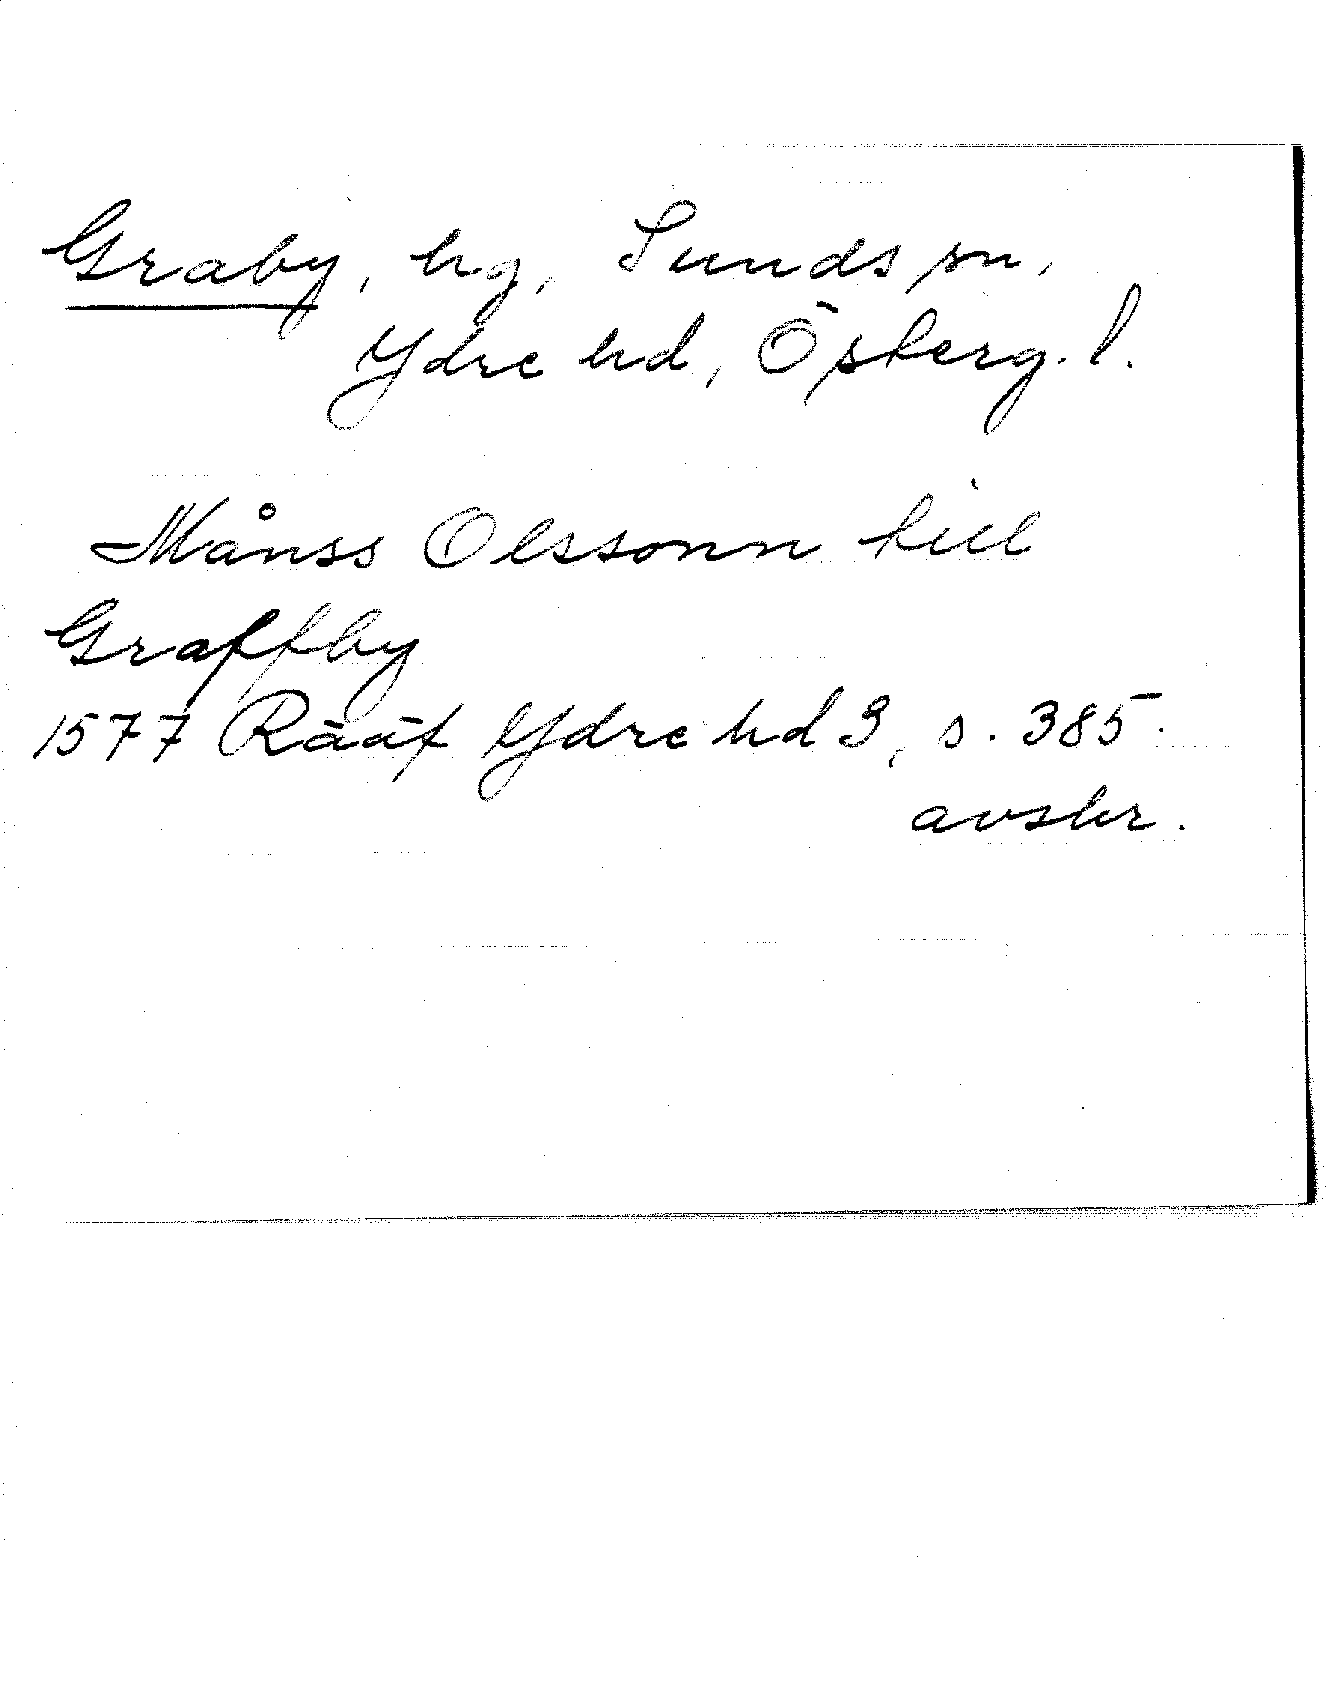 Graby, hg, Sunds sn,
Ydre hd, Österg. l.
Månss Olssonn till
Graffby
1577 Rääf Ydre hd 3, s. 385.
avskr.